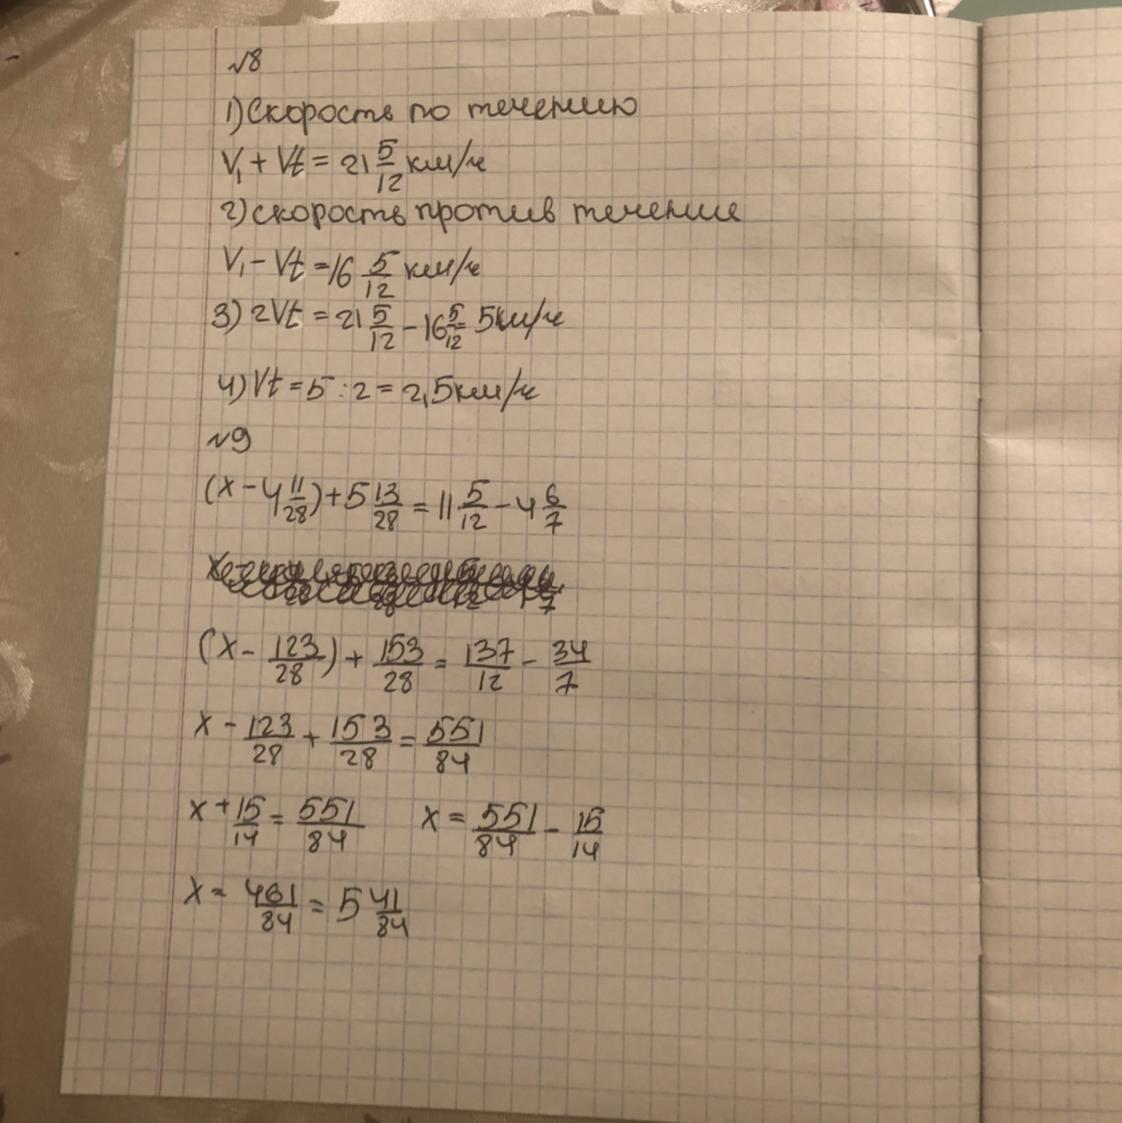 №8
1) Скорость по течению
V₁ + Vt = 21 5/12 км/ч
2) скорость против течение
V₁ - Vt = 16 5/12 км/ч
3) 2Vt = 21 5/12 - 16 5/12 = 5 км/ч
4) Vt = 5 : 2 = 2,5 км/ч
№9
(x - 4 11/28) + 5 13/28 = 11 5/12 - 4 6/7
(x - 123/28) + 153/28 = 137/12 - 34/7
x - 123/28 + 153/28 = 551/84
x + 15/14 = 551/84 x = 551/84 - 15/14
x = 461/84 = 5 41/84